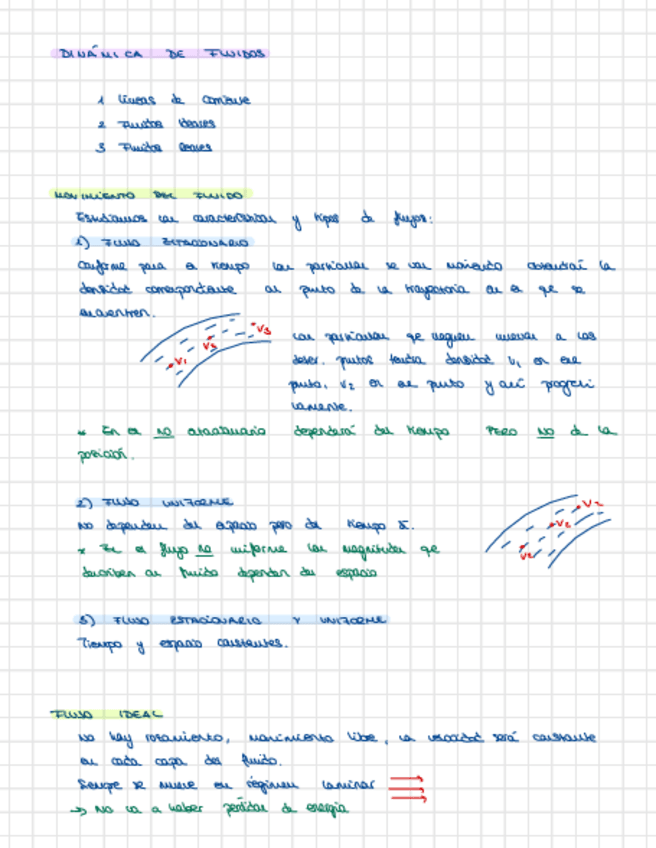 DINÁMICA DE FLUIDOS
1 Líneas de corriente
2 Fluidos ideales
3 Fluidos reales
MOVIMIENTO DEL FLUIDO
Estudiamos las características y tipos de flujos:
1) FLUJO ESTACIONARIO
Conforme pasa el tiempo las partículas se van moviendo la
densidad correspondiente al punto de la trayectoria en el que se
encuentren.
V1
V2
V3
Las partículas que lleguen nuevas a los
puntos densidad V1 en ese
punto, V2 en ese punto y así progresi
vamente.
* En el no estacionario dependerá del tiempo PERO NO de la
posición.
2) FLUJO UNIFORME
No dependen del espacio pero del tiempo sí.
* En el flujo no uniforme las magnitudes que
describen al fluido dependen del espacio
3) FLUJO ESTACIONARIO Y UNIFORME
Tiempo y espacio constantes.
FLUJO IDEAL
No hay rozamiento, movimiento libre, la velocidad será constante
en cada capa del fluido.
Siempre se mueve en régimen laminar
→ No va a haber pérdidas de energía